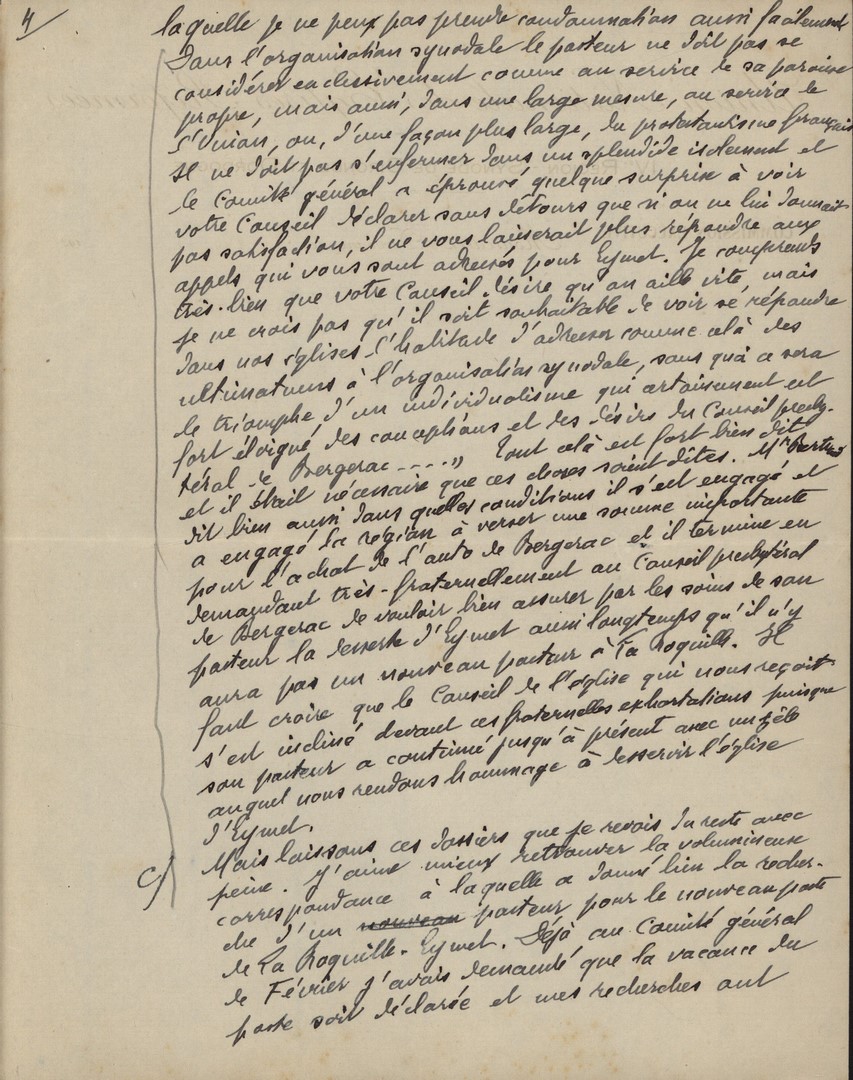 4/
laquelle je ne peux pas prendre condamnation aussi facilement
Dans l'organisation synodale le pasteur ne doit pas se
considérer exclusivement comme au service de sa paroisse
propre, mais aussi, dans une large mesure, au service de
l'Union, ou, d'une façon plus large, du protestantisme français
Il ne doit pas s'enfermer dans un splendide isolement et
le Comité général a éprouvé quelque surprise à voir
votre Conseil déclarer sans détours que si on ne lui donnait
pas satisfaction, il ne vous laisserait plus répondre aux
appels qui vous sont adressés pour Eymet. Je comprends
très-bien que votre Conseil désire qu'on aille vite, mais
je ne crois pas qu'il soit souhaitable de voir se répandre
dans nos églises l'habitude d'adresser comme celà des
ultimatums à l'organisation synodale, sans quoi ce sera
le triomphe d'un individualisme qui certainement est
fort éloigné des conceptions et des désirs du Conseil presby-
téral de Bergerac ...." Tout celà est fort bien dit
et il était nécessaire que ces choses soient dites. Mr
dit bien aussi dans quelles conditions il s'est engagé et
a engagé la région à verser une somme importante
pour l'achat de l'auto de Bergerac et il termine en
demandant très-fraternellement au Conseil presbytéral
de Bergerac de vouloir bien assurer par les soins de son
pasteur la desserte d'Eymet aussi longtemps qu'il n'y
aura pas un nouveau pasteur à La Roquille. Il
faut croire que le Conseil de l'église qui nous reçoit
s'est incliné devant ces fraternelles exhortations puisque
son pasteur a continué jusqu'à présent avec un zèle
auquel nous rendons hommage à desservir l'église
d'Eymet.
c/ Mais laissons ces dossiers que je revois du reste avec
peine. J'aime mieux retrouver la volumineuse
correspondance à laquelle a donné lieu la recher-
che d'un nouveau pasteur pour le nouveau poste
de La Roquille-Eymet. Déjà au Comité général
de Février j'avais demandé que la vacance du
poste soit déclarée et mes recherches ont